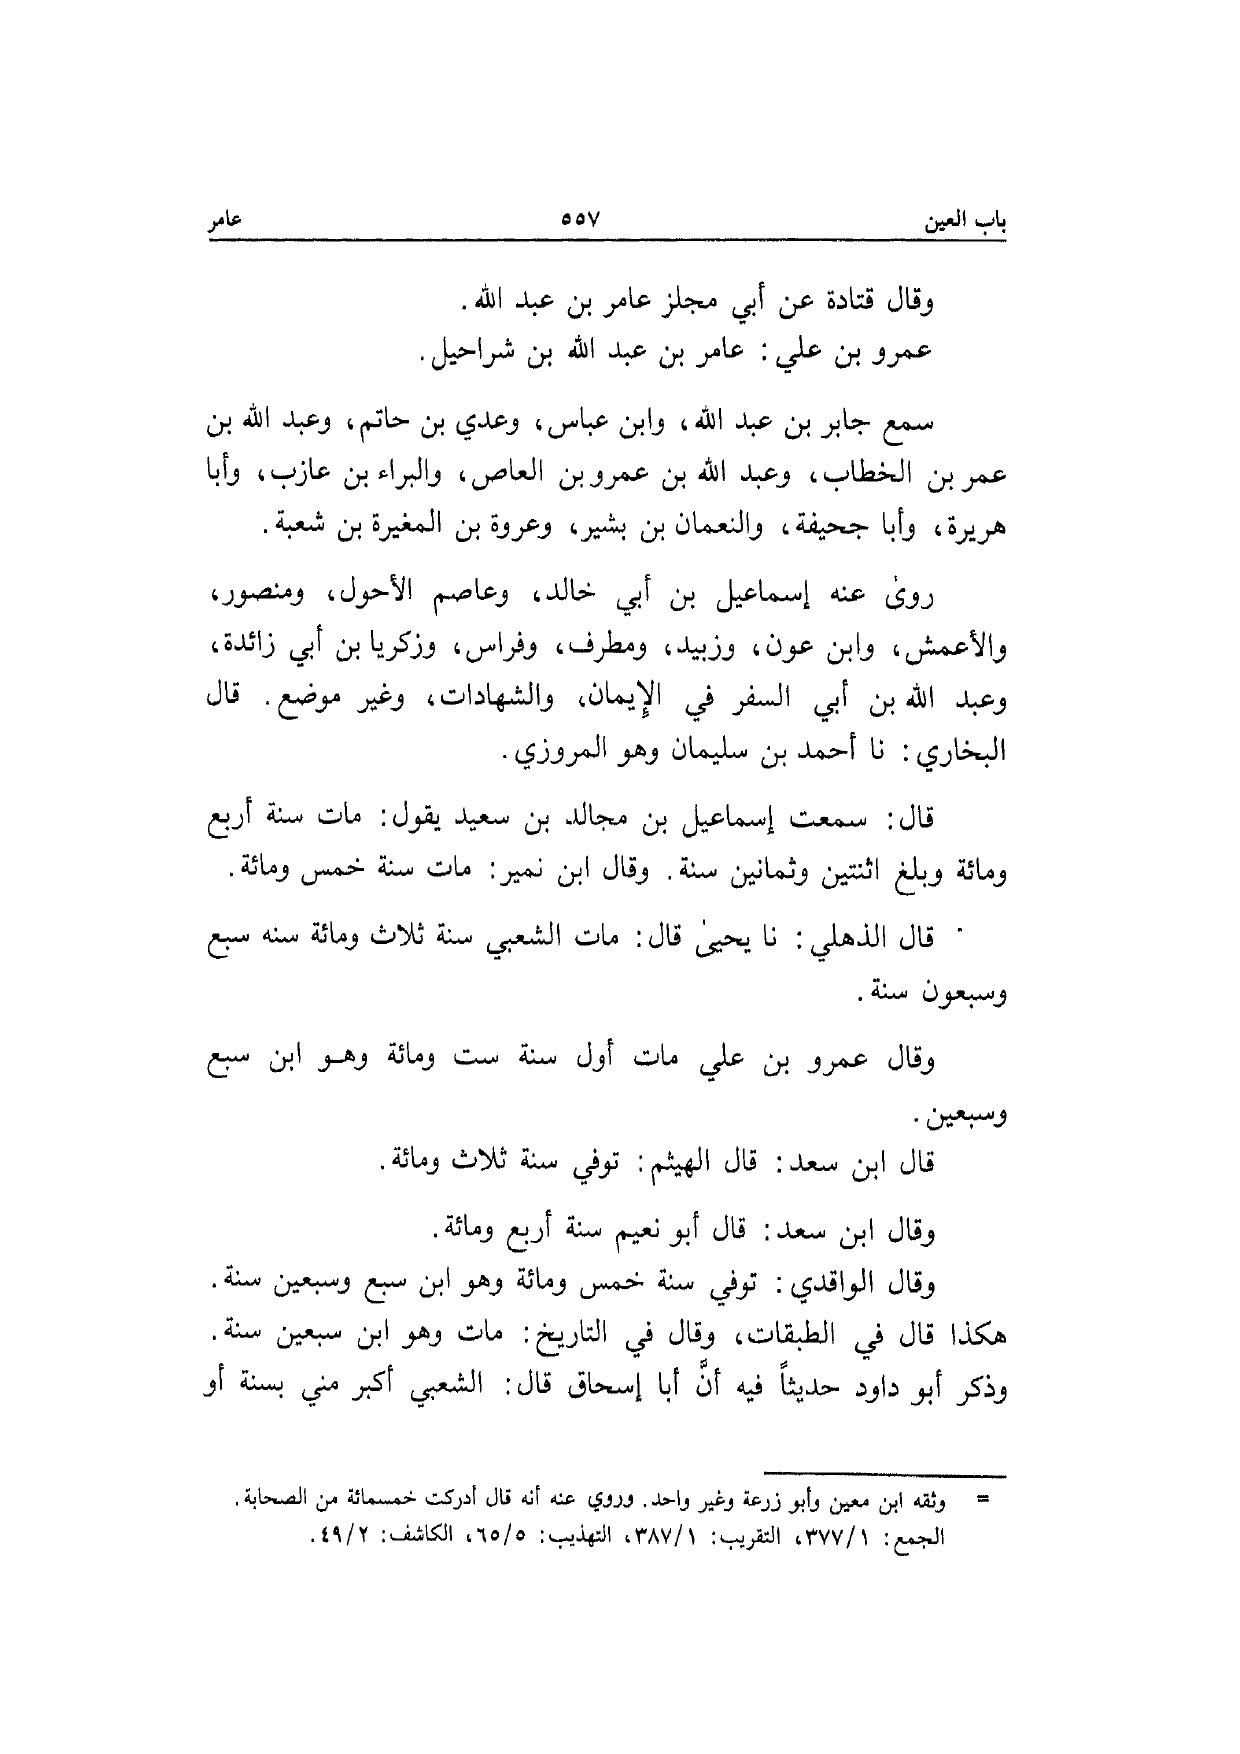 باب العين ٥٥٧ عامر
وقال قتادة عن أبي مجلز عامر بن عبد الله.
عمرو بن علي: عامر بن عبد الله بن شراحيل.
سمع جابر بن عبد الله، وابن عباس، وعدي بن حاتم، وعبد الله بن
عمر بن الخطاب، وعبد الله بن عمرو بن العاص، والبراء بن عازب، وأبا
هريرة، وأبا جحيفة، والنعمان بن بشير، وعروة بن المغيرة بن شعبة.
روىٰ عنه إسماعيل بن أبي خالد، وعاصم الأحول، ومنصور،
والأعمش، وابن عون، وزبيد، ومطرف، وفراس، وزكريا بن أبي زائدة،
وعبد الله بن أبي السفر في الإيمان، والشهادات، وغير موضع. قال
البخاري: نا أحمد بن سليمان وهو المروزي.
قال: سمعت إسماعيل بن مجالد بن سعيد يقول: مات سنة أربع
ومائة وبلغ اثنتين وثمانين سنة. وقال ابن نمير: مات سنة خمس ومائة.
قال الذهلي: نا يحيىٰ قال: مات الشعبي سنة ثلاث ومائة سنه سبع
وسبعون سنة.
وقال عمرو بن علي مات أول سنة ست ومائة وهو ابن سبع
وسبعين.
قال ابن سعد: قال الهيثم: توفي سنة ثلاث ومائة.
وقال ابن سعد: قال أبو نعيم سنة أربع ومائة.
وقال الواقدي: توفي سنة خمس ومائة وهو ابن سبع وسبعين سنة.
هكذا قال في الطبقات، وقال في التاريخ: مات وهو ابن سبعين سنة.
وذكر أبو داود حديثاً فيه أنَّ أبا إسحاق قال: الشعبي أكبر مني بسنة أو
= وثقه ابن معين وأبو زرعة وغير واحد. وروي عنه أنه قال أدركت خمسمائة من الصحابة.
الجمع: ٣٧٧/١، التقريب: ٣٨٧/١، التهذيب: ٦٥/٥، الكاشف: ٤٩/٢.